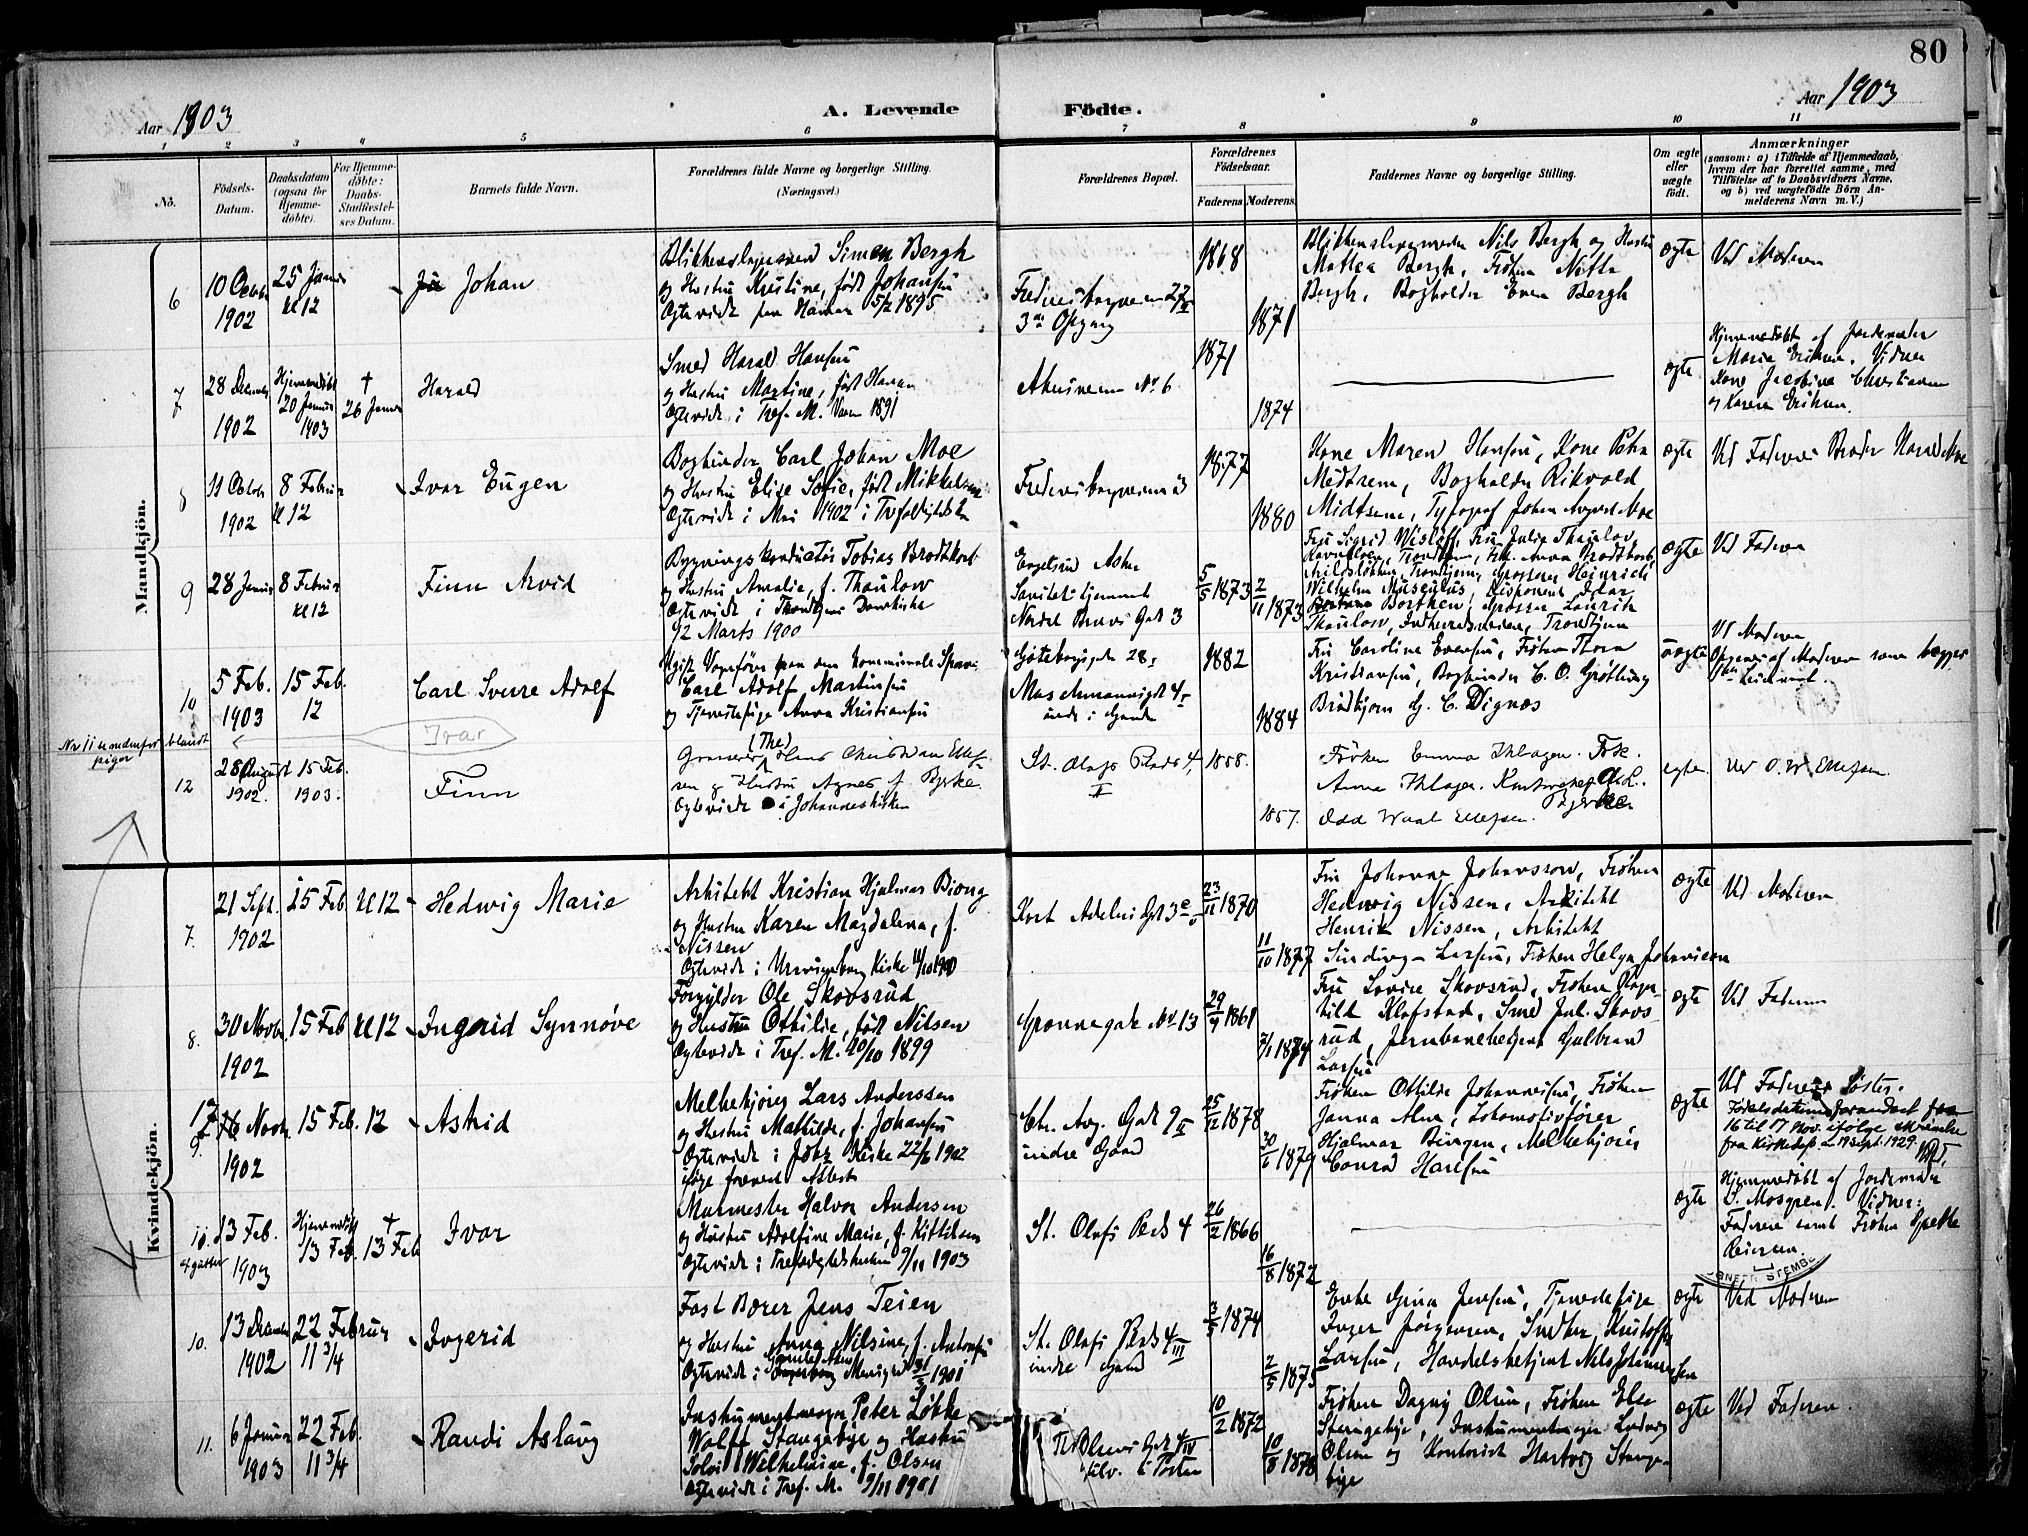 80
Aar 1903
A. Levende
Fødte.
Aar 1903
1 2 3 4 5 6 7 8 9 10 11
No.
Födsels-
Datum.
Daabsdatum
(ogsaa for
Hjemme-
døbte).
For Hjemme-
døbte:
Daabs-
Stadfæstel-
ses Datum.
Barnets fulde Navn.
Forældrenes fulde Navne og borgerlige Stilling.
(Næringsvei.)
Forældrenes Bopæl.
Forældrenes
Födselsaar.
Faderens Moderens.
Faddernes Navne og borgerlige Stilling.
Om ægte
eller
uægte
født.
Anmærkninger
(saasom: a) i Tilfælde af Hjemmedaab,
hvem der har forrettet samme, med
Tilføielse af to Daabsvidners Navne,
og b) ved uægtefødte Børn An-
melderens Navn m. V.)
Mandkjön.
6
10 Octobr
1902
25 Januar
kl 12
Johan
Simen Bergh
og Hustru Kristine, født Johansen
Ægteviede paa Hamar 5/2 1895
Fredensborgveien 27
3die Opgang
1868
1871
Nils Bergh og Hustru
Mathea Bergh, Frøken
Bergh, Bogholder Even Bergh
ægte
Ved Moderen
7
28 Decembr
1902
Hjemmedøbt
20 Januar
1903
†
26 Januar
Harald
Smed Harald Hansen
og Hustru Martine, født Hansen
Ægteviede i Tref. M. 1891
Akersveien No 6
1871
1874
ægte
Hjemmedøbt af Jordemoder
Marie Eriksen. Vidner
Kone Jacobine Christiansen
og Karen Eriksen.
8
11 Octobr
1902
8 Februar
kl 12
Ivar Eugen
Bogbinder Carl Johan Moe
og Hustru Elise Sofie, født Mikkelsen
Ægteviede i Mai 1902 i Trefoldighedsk
Fredensborgveien
1877
1880
Kone Maren Hansen, Kone Petra
Midtsem, Bogholder Rikvold
Midtsem, Typograf Johan August Moe
ægte
Ved Faderens Broder
9
28 Januar
8 Februar
kl 12
Finn Arvid
Bygningskonduktør Tobias Brodtkorb
og Hustru Amalie, f. Thaulow
Ægteviede i Trondhjems Domkirke
12 Marts 1900
Engelsrud Asker
Nordal Bruns Gade 3
5/5 1873
2/11 1873
Fru Sigrid Wisløff, Fru Julie Thaulow,
Trondhjem, Frk. Anna Brodtkorb,
Trondhjem, Grosserer Heinrich
Wilhelm Musculus, Disponent Idar
Borthen, Grosserer Laurits
Thaulow, Trondhjem
ægte
Ved Faderen
10
5 Feb.
1903
15 Feb.
12
Carl Sverre Adolf
Ugift Vognfører paa den kommunale Sporvei
Carl Adolf Martinsen
og Tjenestepige Anna Kristiansen
Gøteborggt 28,
1882
1884
Fru Caroline Evensen, Frøken Thora
Kristiansen, Bogbinder C. O. Grøtting
Brødkjører G. C. Dignæs
uægte
Ved Moderen
Opgives af Moderen
No 11 se nedenfor blandt
piger
Ivar
12
28 August
1902.
15 Feb.
1903.
Finn
(The)
Grosserer Hans Christian Ellef-
sen og Hustru Agnes f. Pyrke.
Ægteviede i Johanneskirken
St. Olafs Plads 4,
II
1858.
1857.
Frøken Emma Ihlagen. Frk.
Anna Ihlagen.
Odd Waal Ellefsen.
ægte.
Ved O. W. Ellefsen.
Kvindekjön.
7.
21 Sept.
1902
15 Feb
kl 12
Hedwig Marie
Arkitekt Kristian Hjalmar Biong
og Hustru Karen Magdalena, f.
Nissen
Ægteviede i Uranienborg Kirke 11/10 1900
Kort Adelers Gt 3
23/11 1870
11/10 1877
Fru Johanne Johansson, Frøken
Hedwig Nissen, Arkitekt
Henrik Nissen, Arkitekt
Sinding-Larsen, Frøken Helga Johannesen
ægte
Ved Moderen
8.
30 Novbr
1902
15 Feb
kl 12
Ingrid Synnøve
Forgylder Ole Skovsrud
og Hustru Othilie, født Nilsen
Ægteviede i Tref. M. 20/10 1899
Grønnegade No 13
29/9 1861
2/1 1874
Fru Lovise Skovsrud, Frøken Ragn-
hild Klofstad, Smed Jul. Skovs-
rud, Jernbanebetjent Gulbrand
Larsen
ægte
Ved Faderen
9.
17
16 Novbr.
1902
15 Feb. 12
Astrid
Melkekjører Lars Anderssen
og Hustru Mathilde, f. Johansen
Ægteviede i Joh. Kirke 22/6 1902
ifølge forevist Attest
Chr. Aug. Gade 9 II
indre Gaard
25/12 1878
30/6 1879
Frøken Othilde Johannesen, Frøken
Janna Alm, Lokomotivfører
Hjalmar Bingen, Melkekjører
Conrad Harlsen
ægte
Ved Faderens Søster.
Fødselsdatum forandret fra
16 til 17 Nov. ifølge skrivelse
fra Kirkedep. 19 sept. 1929.
10.
13 Feb.
1903
Hjemmedøbt
13 Feb.
†
13 Feb
Ivar
Murmester Halvor Andersen
og Hustru Adolfine Marie, f. Kittilsen
Ægteviede i Trefoldighedskirken 9/11 1903
St. Olafs Plads 4
26/2 1866
16/8 1872
ægte
Hjemmedøbt af Jordemoder
Mosgren. Vidner:
Faderen samt Frøken
10.
13 Decembr
1902
22 Februar
11 3/4
Ingerid
Jens Teien
og Hustru Anna Nilsine, f. Antonsen
Gamle Aker
Ægteviede i Menighed 1901
St. Olafs Plads 4 III
indre Gaard
3/5 1874
2/5 1875
Enke Gina Jensen, Tjenestepige
Inger Jørgensen, Snedker Kristoffer
Larsen, Handelsbetjent Nils Johannes-
sen
ægte
Ved Moderen
11.
6 Januar
1903
22 Feb.
11 3/4
Randi Aslaug
Instrumentmager Peter Løkke
Wolff Stangebye og Hustru
Wilhelmine, f. Olsen
Ægteviede i Tref. M. 9/11 1901
10/2 1872
10/8 1878
Frøken Dagny Olsen, Frøken Else
Stangebye, Instrumentmager Ludvig
Olsen og Kontorist Hartvig Stange-
bye
ægte
Ved Faderen.